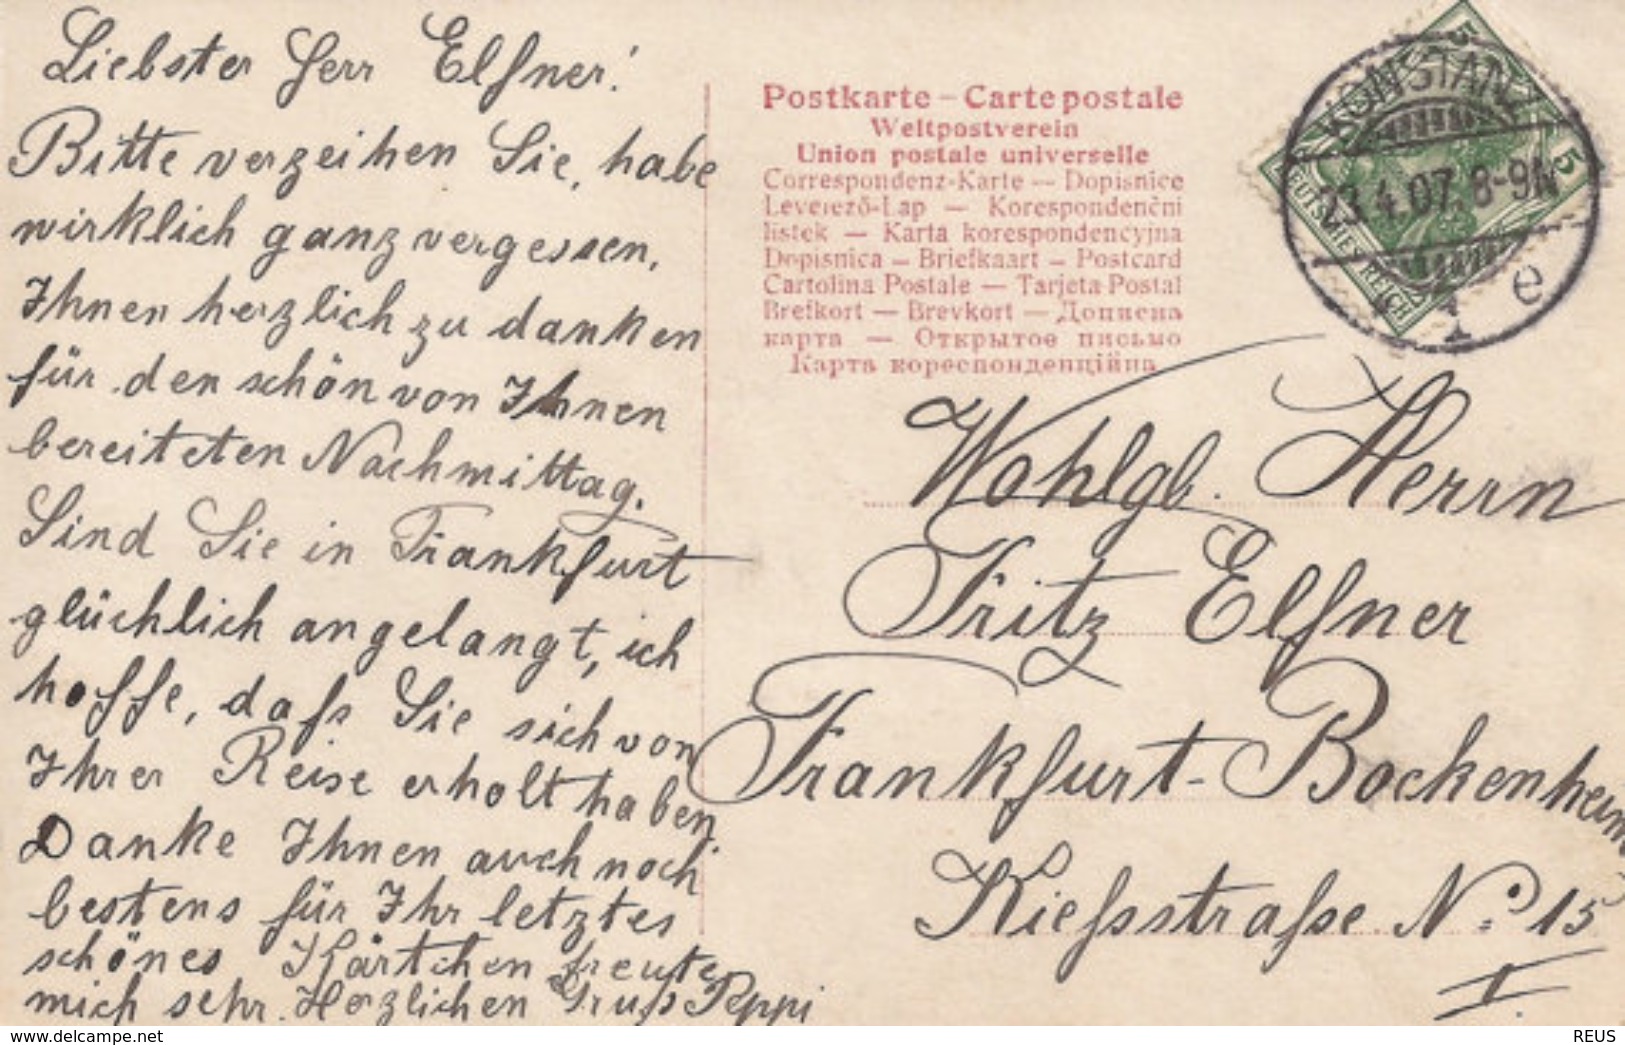 Liebster Herr Elsner!
Bitte verzeihen Sie, habe
wirklich ganz vergessen,
Ihnen herzlich zu danken
für den schön von Ihnen
bereiteten Nachmittag.
Sind Sie in Frankfurt
glücklich angelangt, ich
hoffe, dafs Sie sich von
Ihrer Reise erholt haben
Danke Ihnen auch noch
bestens für Ihr letztes
schönes Kärtchen freute
mich sehr. Herzlichen Grufs Peppi
Postkarte – Carte postale
Weltpostverein
Union postale universelle
Correspondenz-Karte — Dopisnice
Levelező-Lap — Korespondenční
listek — Karta korespondencyjna
Dopisnica — Briefkaart — Postcard
Cartolina Postale — Tarjeta Postal
Brefkort — Brevkort — Дописна
карта — Открытое письмо
Карта кореспонденційна
KONSTANZ
23.4.07. 8-9N
* 1 e
5
5
DEUTSCHES REICH
Wohlgb. Herrn
Fritz Elsner
Frankfurt-Bockenheim
Kiefsstrafse No. 15
II.
www.delcampe.net
REUS